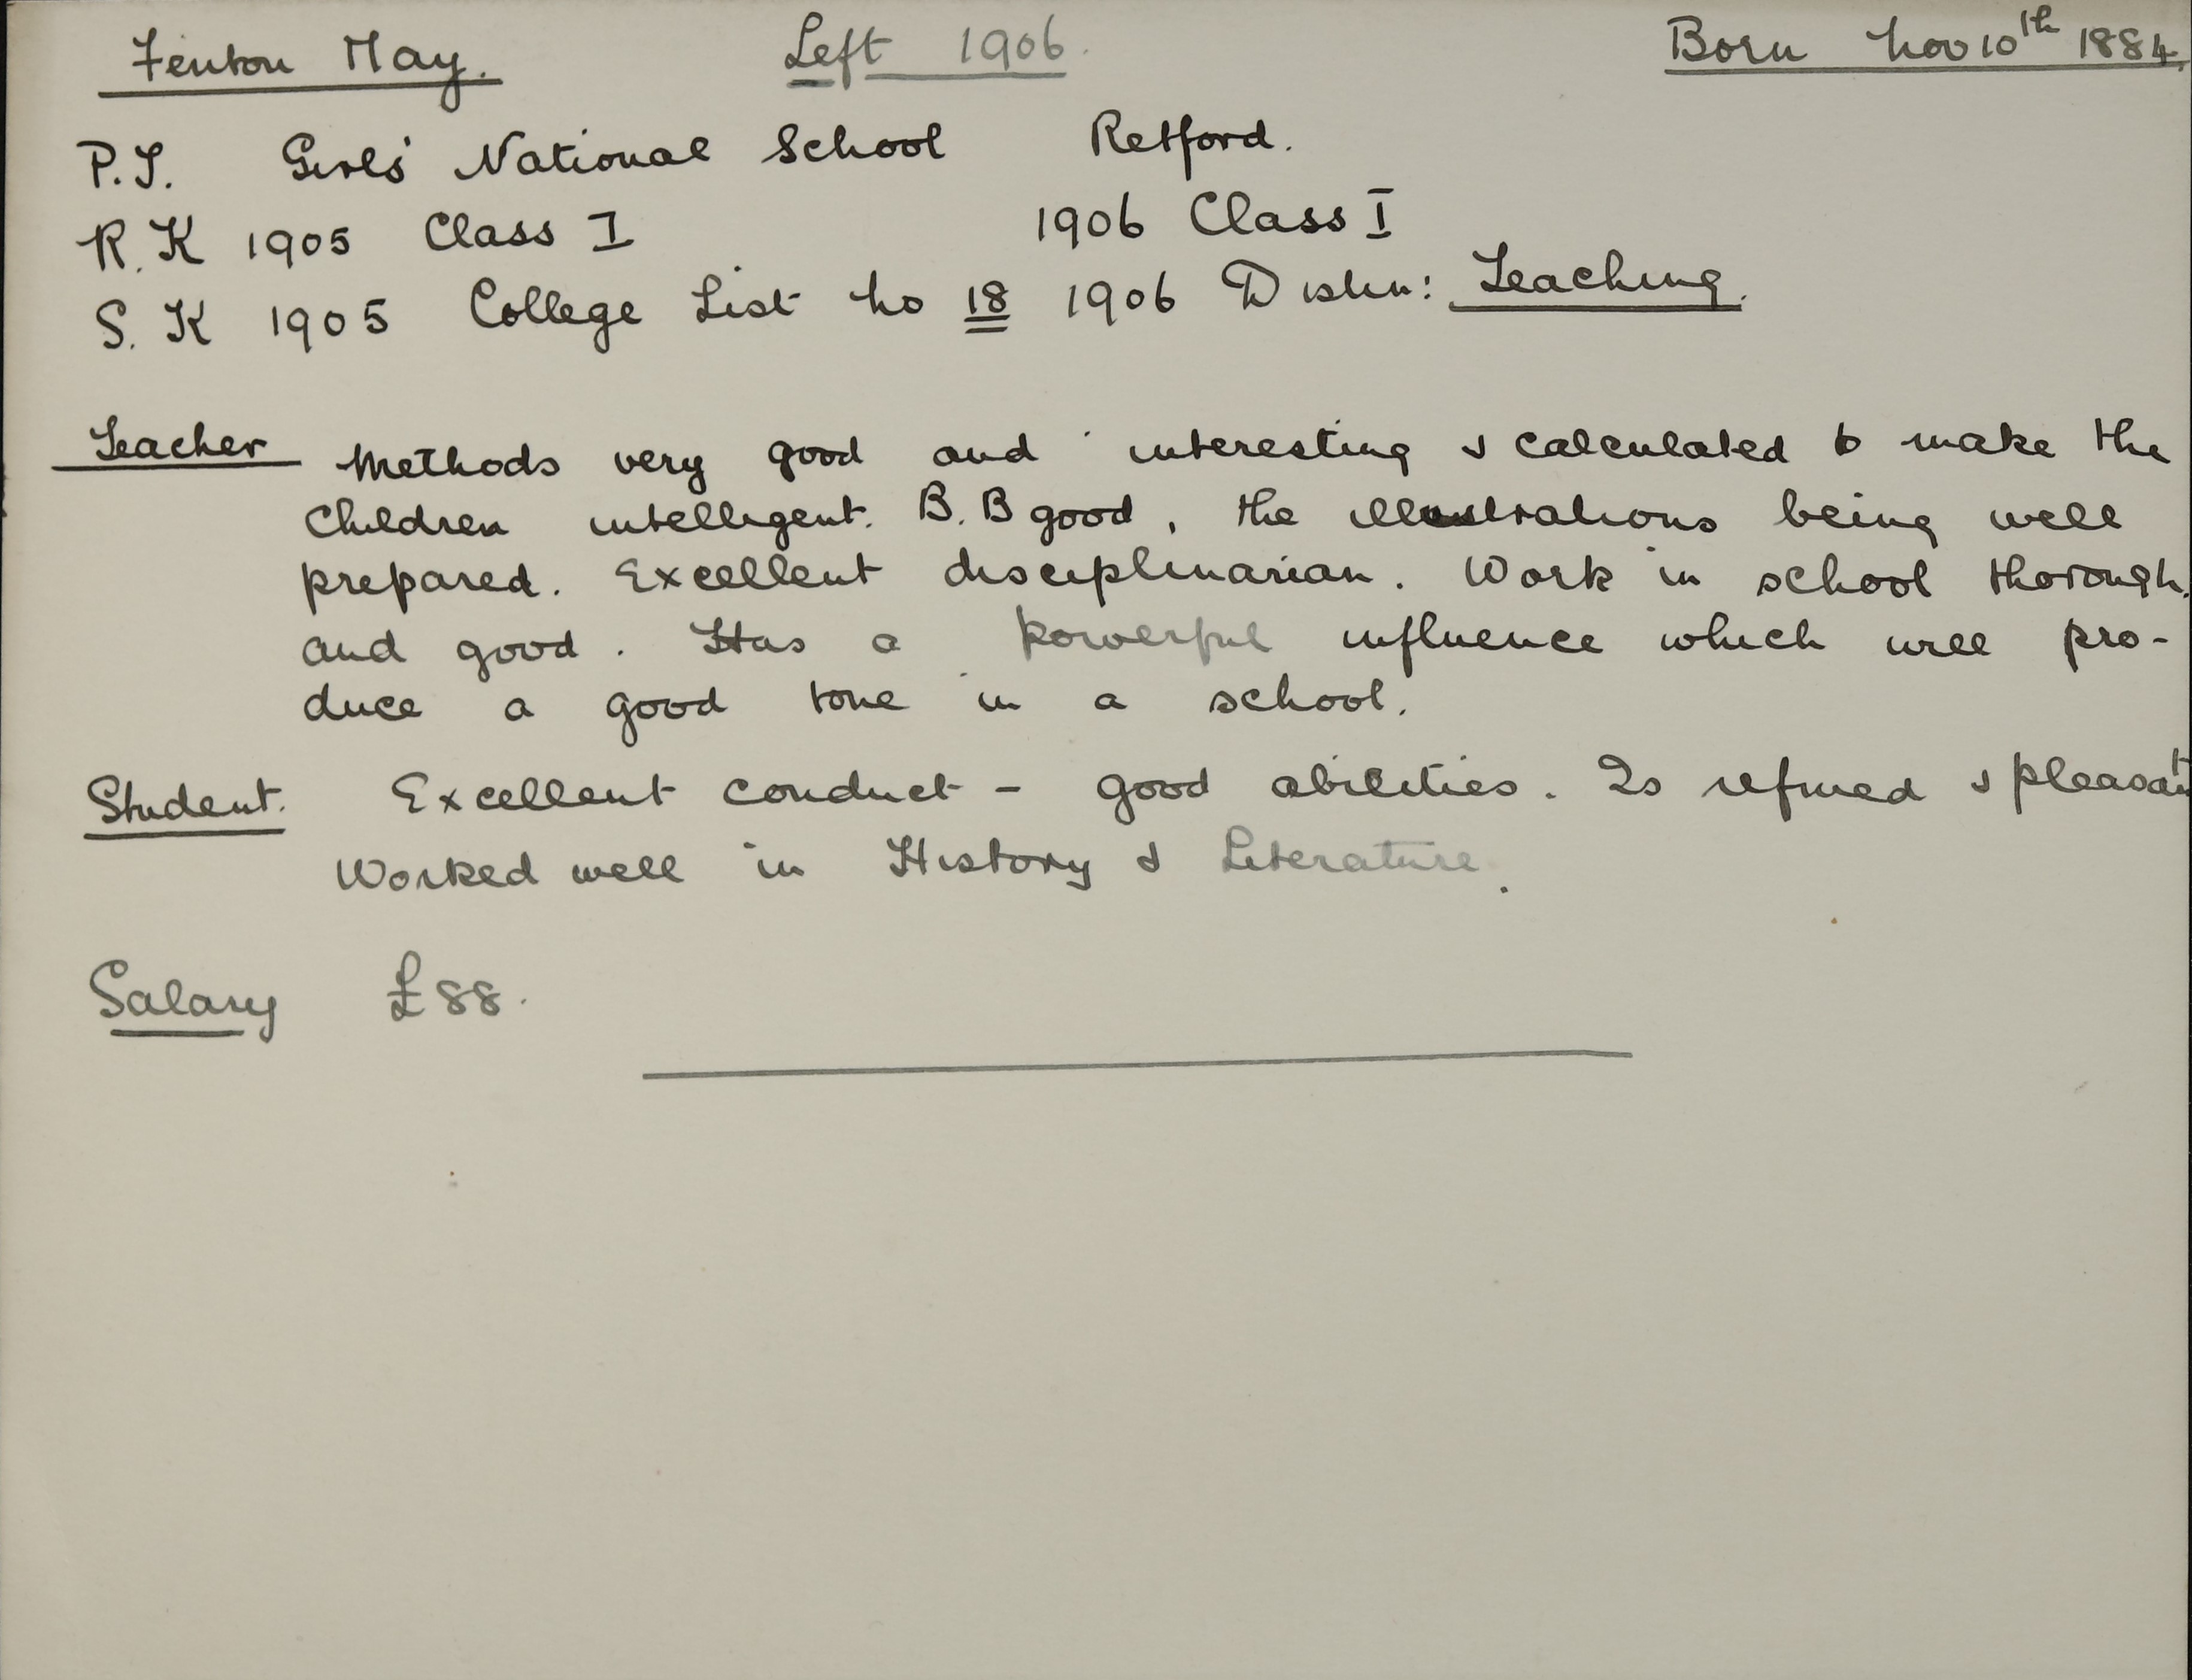 Fenton May. Left 1906. Born Nov 10th 1884.
P.T. Girls' National School Retford.
R.K 1905 Class I 1906 Class I
S.K 1905 College List No 18 1906 Distn: Teaching.
Teacher Methods very good and interesting & calculated to make the
children intelligent. B.B good, the illustrations being well
prepared. Excellent disciplinarian. Work in school thorough
and good. Has a powerful influence which will pro-
duce a good tone in a school.
Student. Excellent conduct - good abilities. Is refined & pleasant
Worked well in History & Literature.
Salary £88.